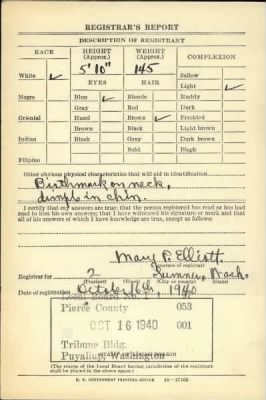 REGISTRAR'S REPORT
DESCRIPTION OF REGISTRANT
RACE HEIGHT (Approx.) WEIGHT (Approx.) COMPLEXION
5' 10" 145
White ✓ EYES HAIR Sallow
Light ✓
Negro Blue ✓ Blonde Ruddy
Gray Red Dark
Oriental Hazel Brown ✓ Freckled
Brown Black Light brown
Indian Black Gray Dark brown
Bald Black
Filipino
Other obvious physical characteristics that will aid in identification
Birthmark on neck,
dimple in chin.
I certify that my answers are true; that the person registered has read or has had
read to him his own answers; that I have witnessed his signature or mark and that
all of his answers of which I have knowledge are true, except as follows:
Mary P. Elliott
(Signature of registrar)
Registrar for 2 Sumner, Wash.
(Precinct) (City or county) (State)
Date of registration October 16, 1940
Pierce County 053
OCT 16 1940 001
Tribune Bldg.
Puyallup, Washington
(STAMP OF LOCAL BOARD)
(The stamp of the Local Board having jurisdiction of the registrant
shall be placed in the above space.)
U. S. GOVERNMENT PRINTING OFFICE